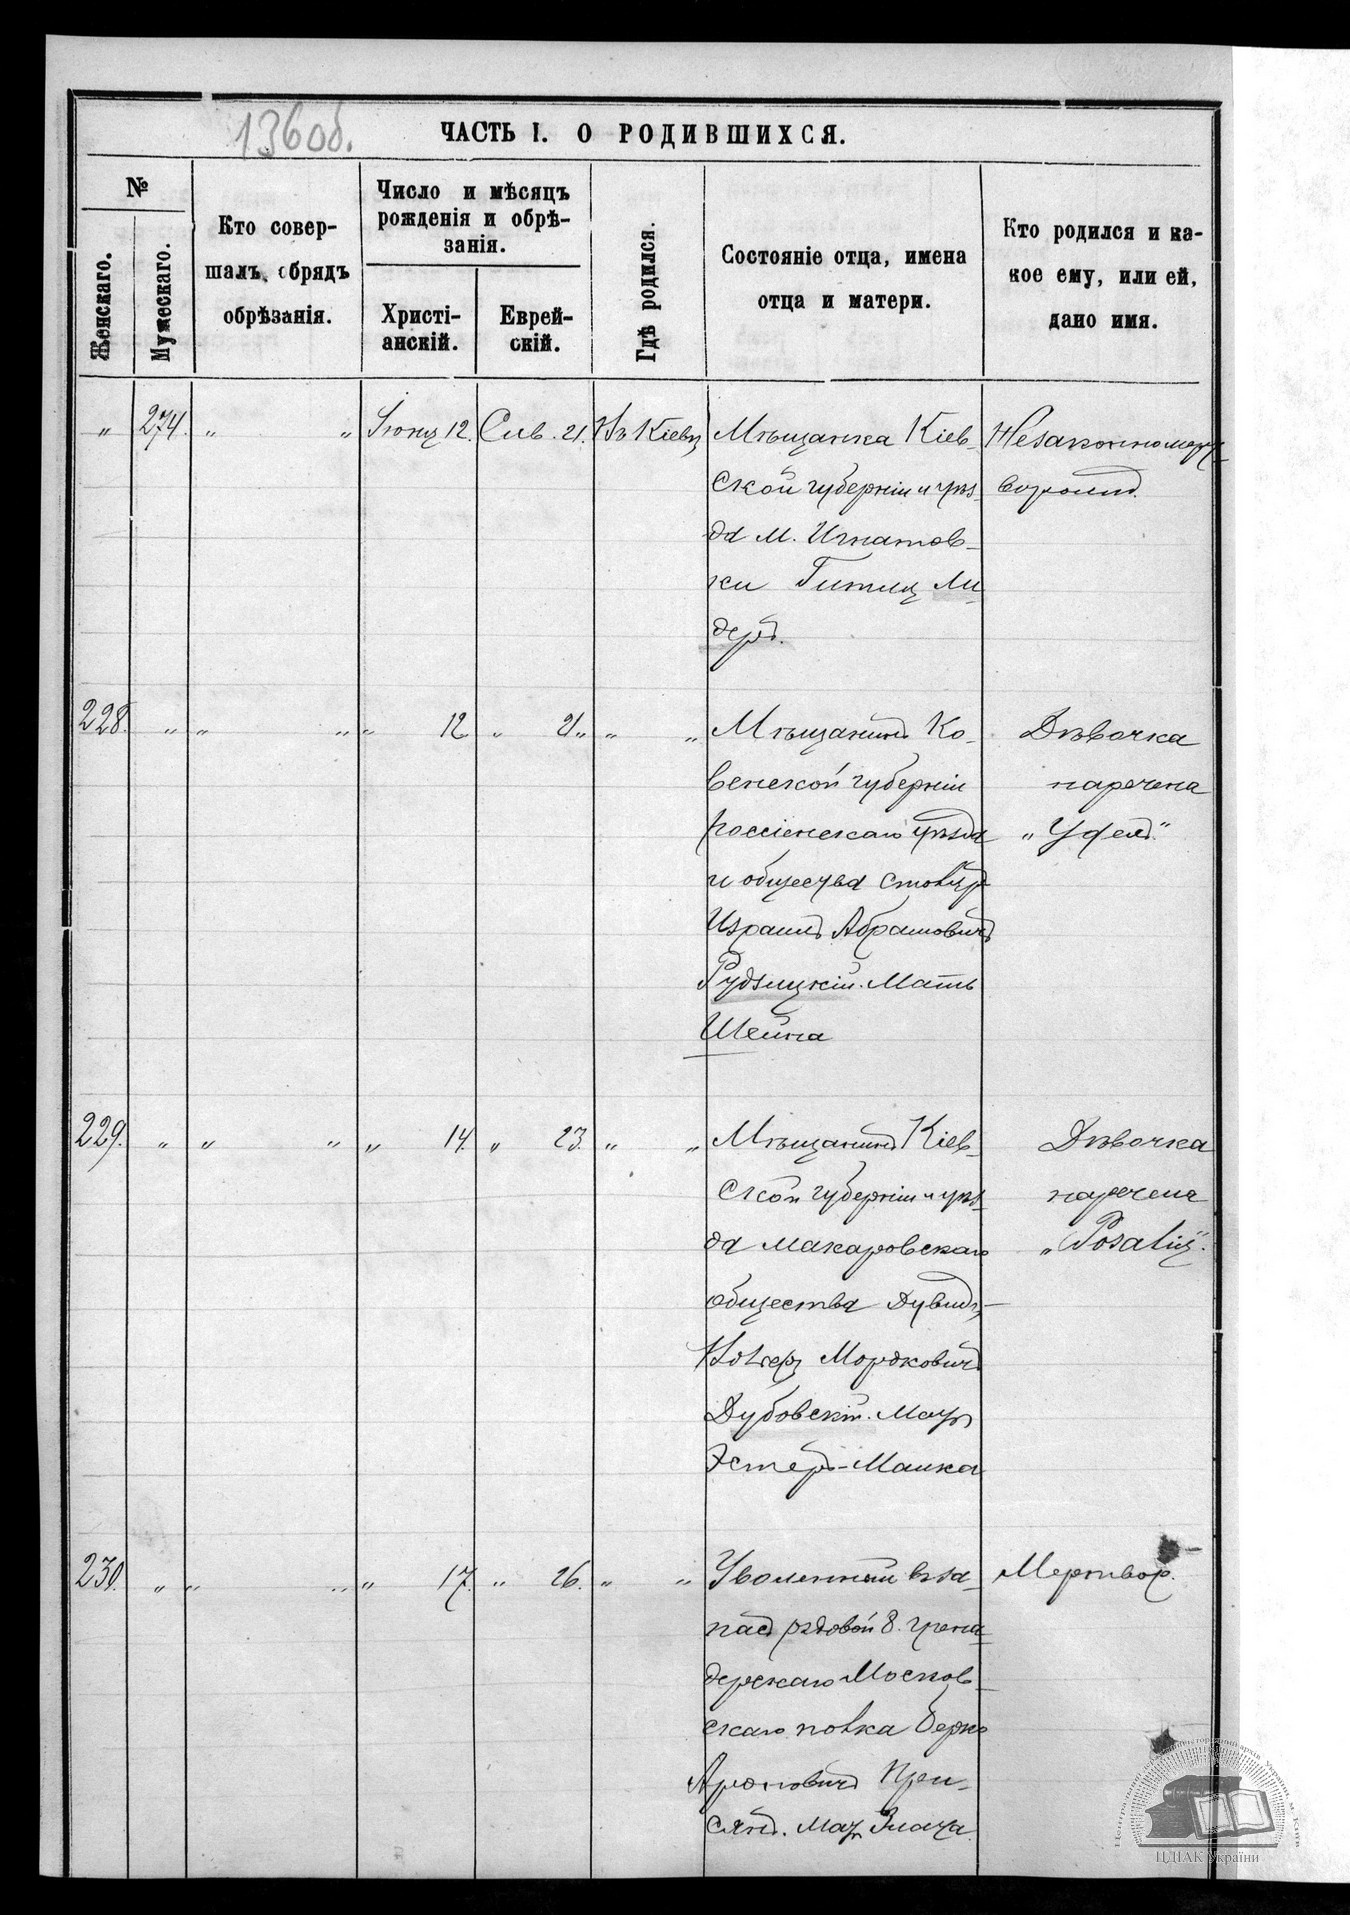 136об.
ЧАСТЬ I. О РОДИВШИХСЯ.
№
Женскаго.
Мужескаго.
Кто совер-
шалъ обрядъ
обрѣзанія.
Число и мѣсяцъ
рожденія и обрѣ-
занія.
Христі-
анскій.
Еврей-
скій.
Гдѣ родился.
Состояніе отца, имена
отца и матери.
Кто родился и ка-
кое ему, или ей,
дано имя.
„ 274. „ „ Іюня 12. Сив. 21. Въ Кіевѣ Мѣщанка Кіев-
ской губерніи и уѣз-
да м. Игнатов-
ки Гитля Ли-
деръ.
Незаконно мерт-
ворожд.
228. „ „ „ „ 12 „ 21 „ „ „ Мѣщанинъ Ко-
венской губерніи
Россіенскаго уѣзда
и общества
Израиль Абрамовичъ
Рудзицкій. Мать
Шейна
Дѣвочка
наречена
229. „ „ „ „ 14. „ 23. „ „ Мѣщанинъ Кіев-
ской губерніи и уѣз-
да Макаровскаго
общества Дувидъ-
Мордковичъ
Дубовскій. Мать
Эстеръ-Малка
Дѣвочка
наречена
„Розалія“.
230. „ „ „ „ 17. „ 26. „ „ Уволенный въ за-
пасъ рядовой 8. грена-
дерскаго Москов-
скаго полка Берко
Ароновичъ
Мать Злата
Мертвор.
ЦДІАК України